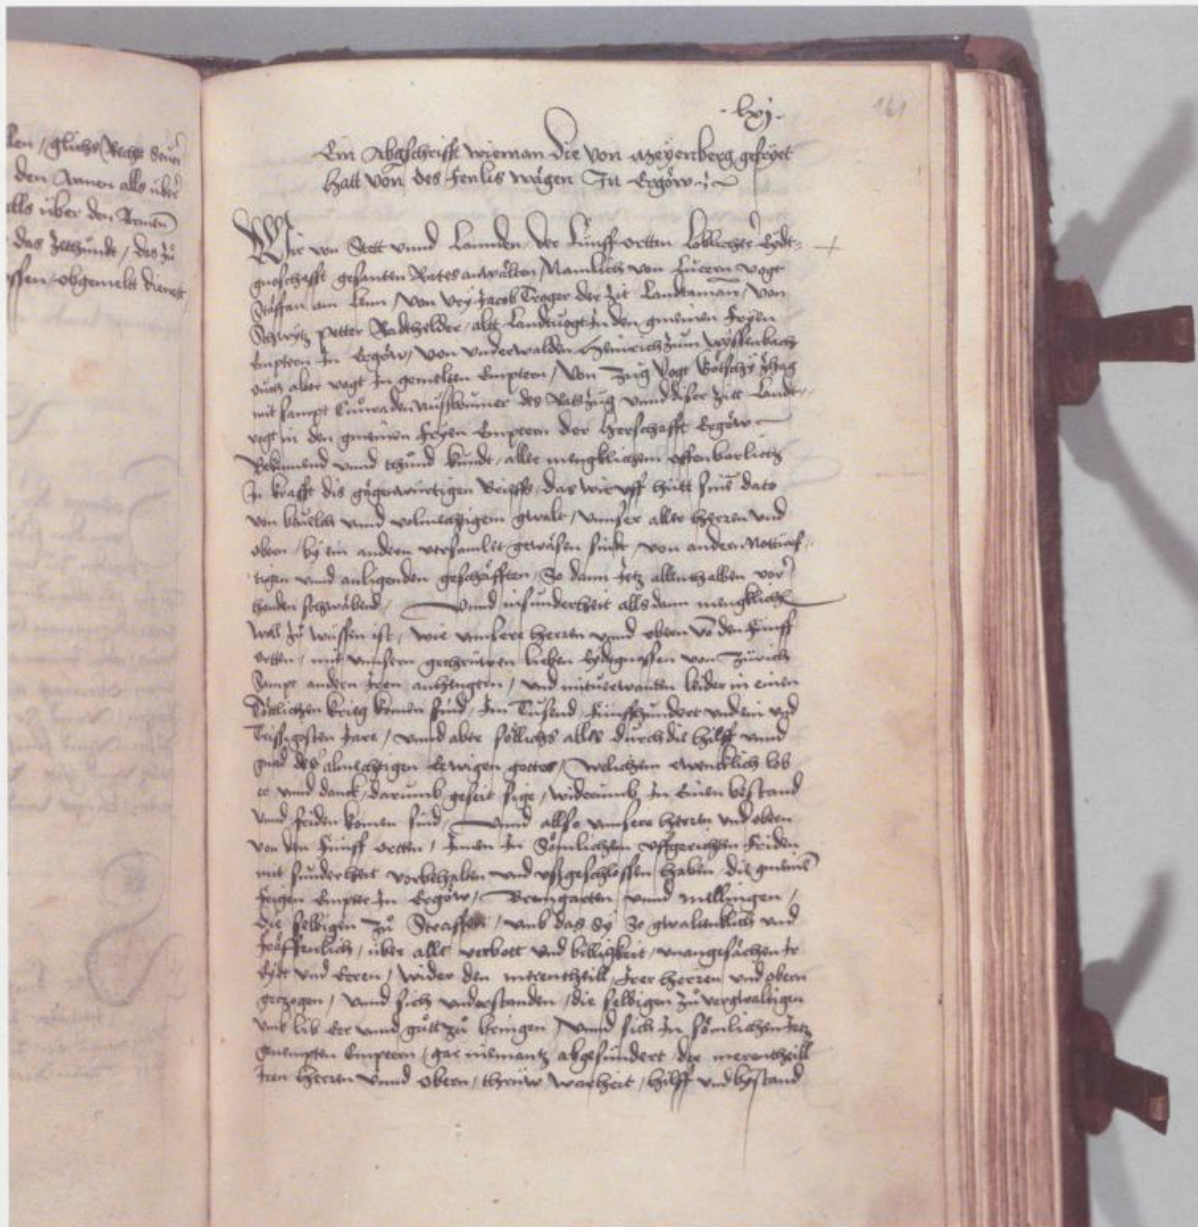 len / glichs Rechts
den Armen alls über
alls über den Armen
das Jetzundt / das zu
obgemelt dienst
·lxj·
161
Ein Abgschrifft wie man die von Meyenberg gefryet
hatt von des fenlis wägen In Ergöw
Wir von Stett unnd Lannden der Fünff ortten Loblicher Eydt-
gnoschafft gesanten Rates anwälten / Namlich von Lucern vogt
am Lenn / von Ury Jacob Troger der Zit Landtaman / von
Schwytz petter Radtheller / altt Landtvogt In den gmeinen Fryen
Empttern In Ergöw / von underwalden Heinrich zum wyssenbach
ouch alter vogt In gemelten Empttern / von Zug vogt
mit sampt Cunraden Nussboumer des Rats Zug unnd diser Zitt Landt-
vogt in den gmeinen Fryen Empttern der Herschafft Ergöw
Bekennend unnd thund kundt / aller mengklichem offenbarlich
In krafft dis gägenwürtigen brieffs / das wir uff hütt sins dato
von bevelch unnd volmechtigem gwalt / unnser aller herren und
obern / by ein andern versamlet gewäsen sindt / von andern Nottraf-
tigen unnd anligenden geschäfften / So dann Jetz allenthalben vor
handen schwäbend / unnd insunderheit alls dann mengklich
wol zu wüssen ist / wie unnsere herren unnd obern von den Fünff
ortten / mit unnsern gethrüwen lieben Eydtgnossen von Zürich
sampt andern Iren anhengern / und mitverwanten leider in einen
tödtlichen krieg komen sind / Im Tusend Fünffhundert und ein und
Trissigosten Jare / unnd aber söllichs alles durch die hilff unnd
gnad des almechtigen Ewigen gottes / welichem ewencklich lob
er unnd danck / darumb geseit sige / widerumb In Einen bestand
unnd friden komen sind / unnd allso unnsere herren und obern
von den Fünff ortten / Innen In Sömlichem uffgerichten friden
mit sunderheit vorbehalten und ussgeschlossen haben die gmeinen
Fryen Emptter In Ergöw / Bremgarten unnd mellingen /
Die selbigen zu Straffen / umb das sy So gwaltenklich und
fräffenlich / über alle verbott und billigkeit / unangesächen Ir
Eydt und Eeren / wider den merentheill Irer herren und obern
gezogen / unnd sich understanden / die selbigen zu vergwaltigen
umb lib Eer unnd gutt zu bringen / unnd sich In sömlichen Jetz
gnempten Empttern / gar niemantz abgesündert der merentheill
Iren herren unnd obern / thrüw warheit / hilff und bystand